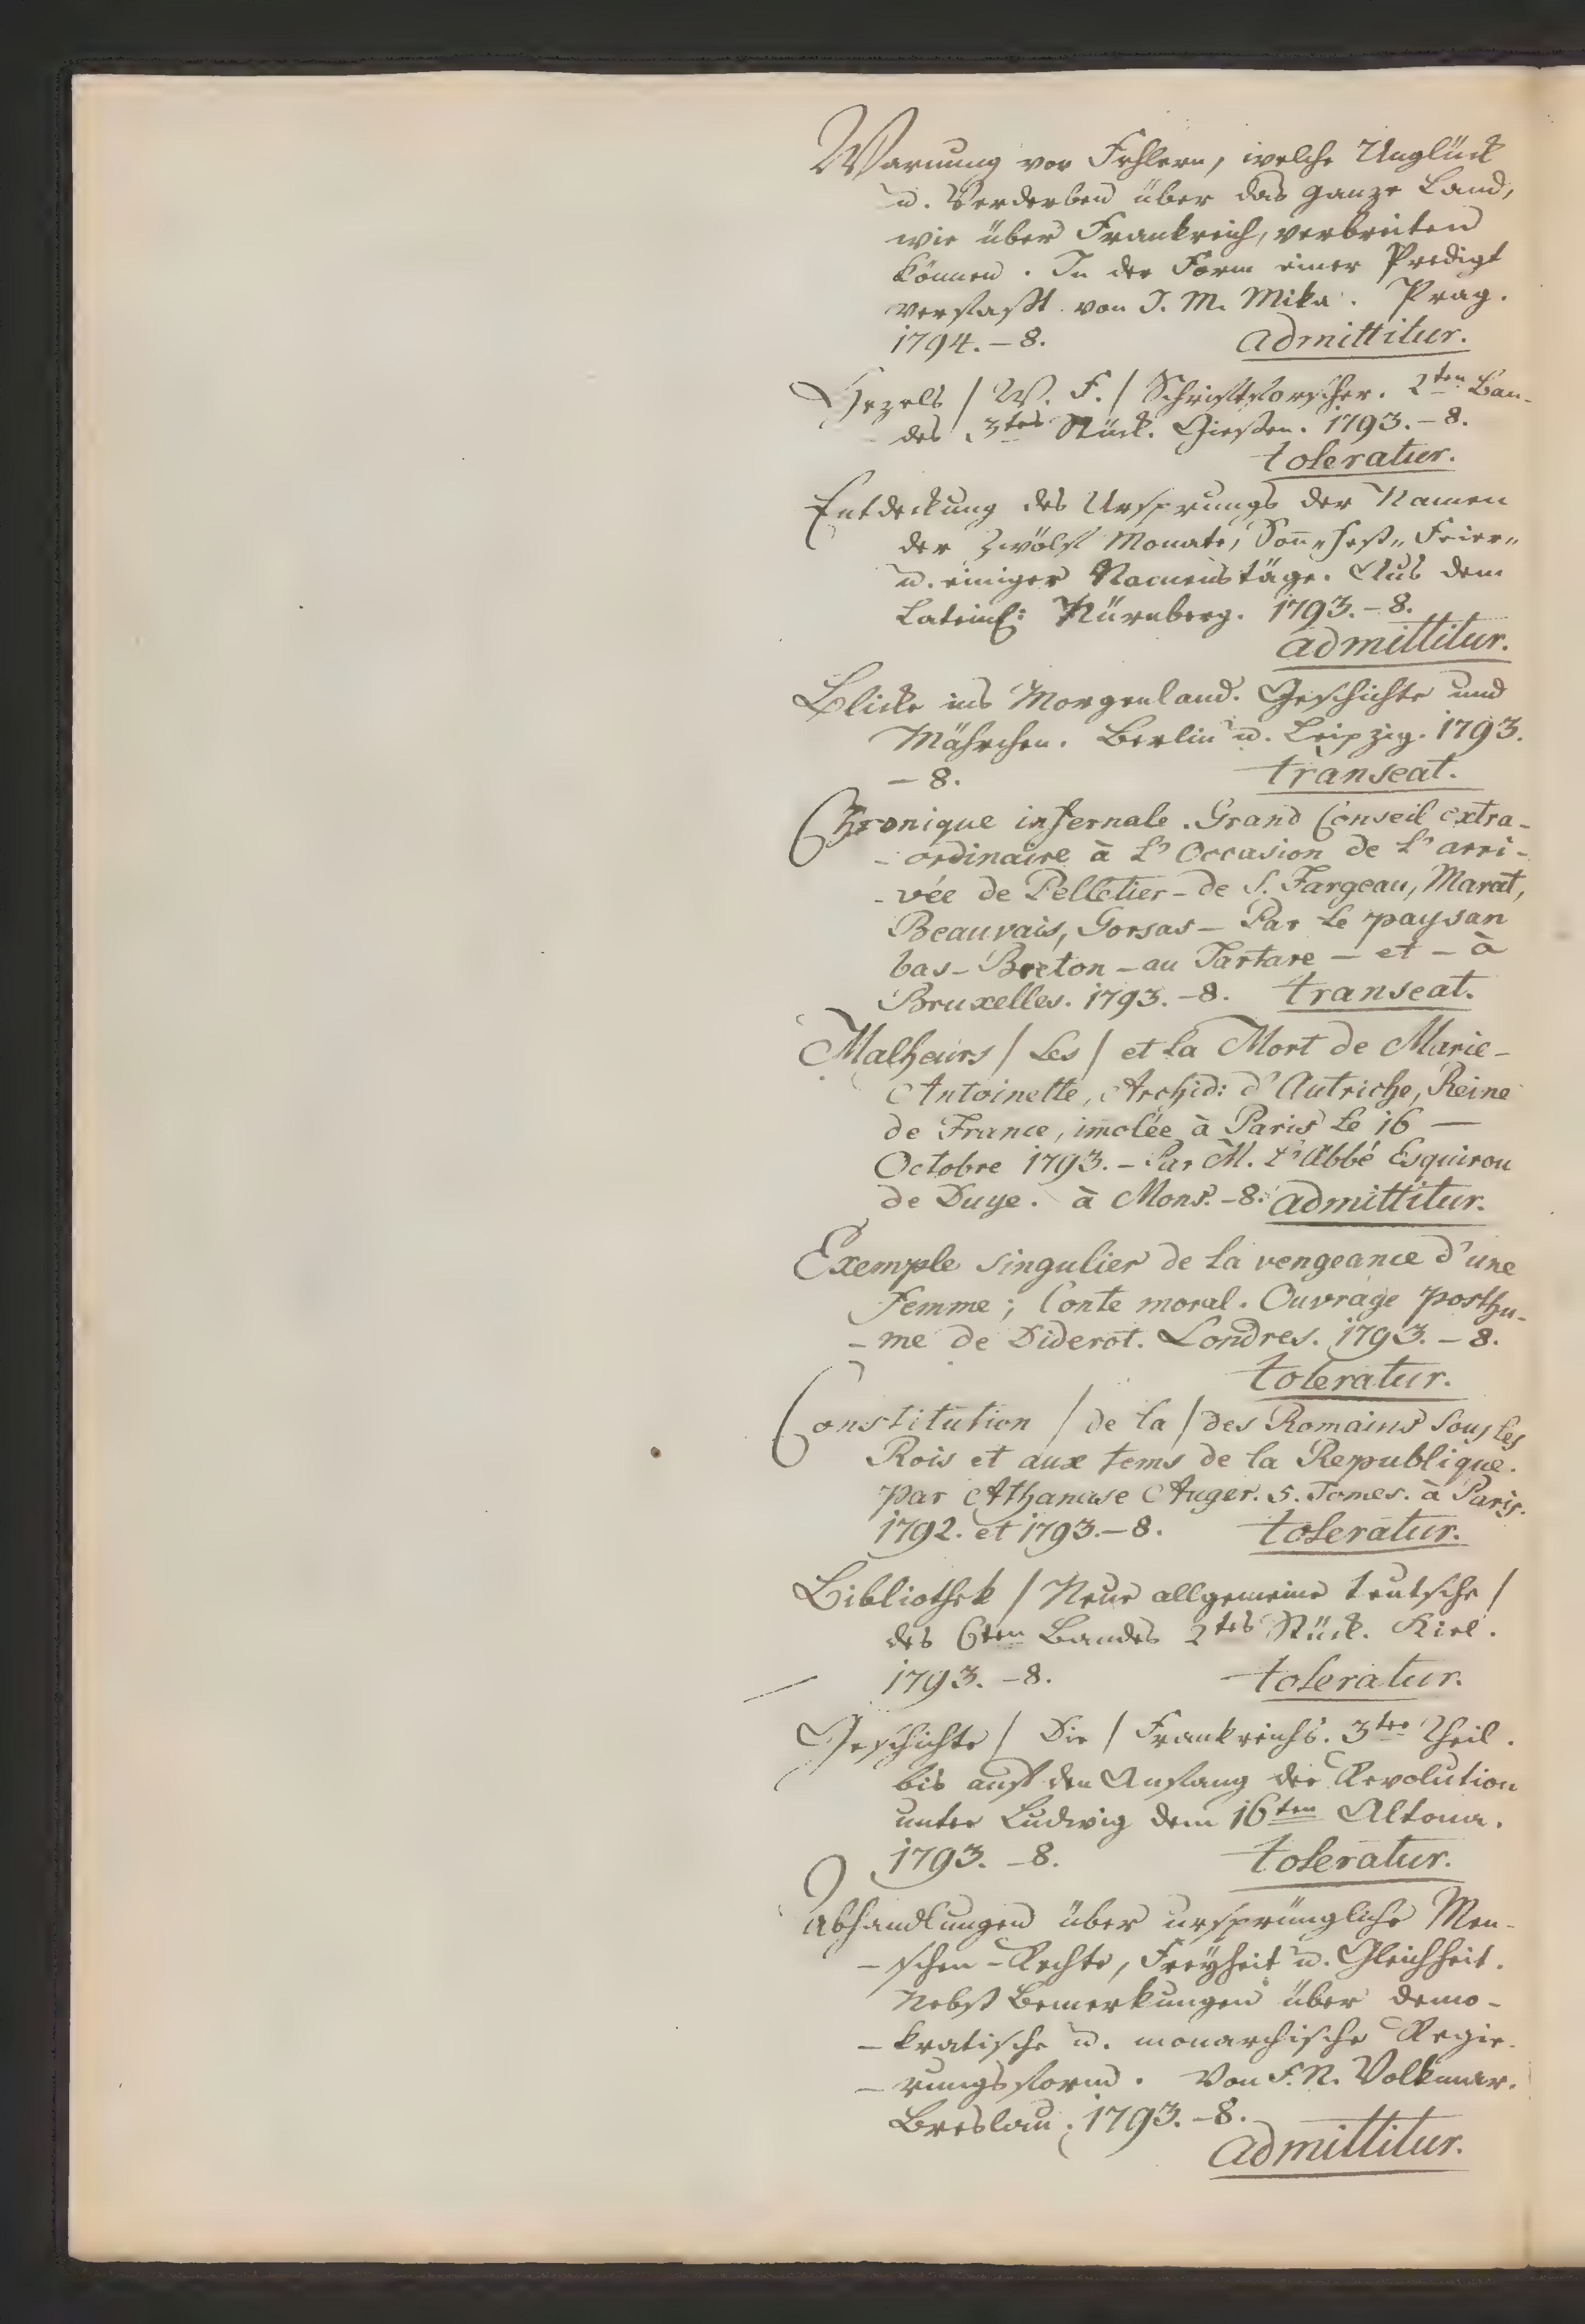 Warnung vor Fehlern, welche Unglück
u. Verderben über das ganze Land,
wie über Frankreich, verbreiten
können. In der Form einer Predigt
verfaßt von J. M. Mika. Prag.
1794. – 8. admittitur.
Hezels / W. F. / Schriftforscher. 2ten Ban-
des 3tes Stück. Gießen. 1793. – 8.
toleratur.
Entdeckung des Ursprungs der Namen
der zwölf Monate, Soñ„ Fest„ Feier„
u. einiger Namenstäge. Aus dem
Latein: Nürnberg. 1793. – 8.
admittitur.
Blicke ins Morgenland. Geschichte und
Mährchen. Berlin u. Leipzig. 1793.
– 8. transeat.
Chronique infernale. Grand Conseil extra-
- ordinaire à L'Occasion de L'arri-
- vée de Pelletier - de S. Fargeau, Marat,
Beauvais, Gorsas – Par Le paysan
bas-Breton – au Tartare – et – à
Bruxelles. 1793. – 8. transeat.
Malheurs / Les / et la Mort de Marie-
Antoinette, Archid: d'Autriche, Reine
de France, im̄olée à Paris Le 16 —
Octobre 1793. – Par M. L'Abbé Esquiron
de Duye. à Mons. – 8. admittitur.
Exemple singulier de la vengeance d'une
Femme; Conte moral. Ouvrage posthu-
- me de Diderot. Londres. 1793. – 8.
toleratur.
Constitution / de la / des Romains sous les
Rois et aux tems de la Republique.
par Athanase Auger. 5. Tomes. à Paris.
1792. et 1793. – 8. toleratur.
Bibliothek / Neue allgemeine teutsche /
des 6ten Bandes 2tes Stück. Kiel.
1793. – 8. toleratur.
Geschichte / Die / Frankreichs. 3ter Theil.
bis auf den Anfang der Revolution
unter Ludwig dem 16ten Altona.
1793. – 8. toleratur.
Abhandlungen über ursprüngliche Men-
- schen-Rechte, Freÿheit u. Gleichheit.
Nebst Bemerkungen über demo-
- kratische u. monarchische Regie-
- rungsform. Von F. N. Volkmar.
Breslau. 1793. – 8.
admittitur.